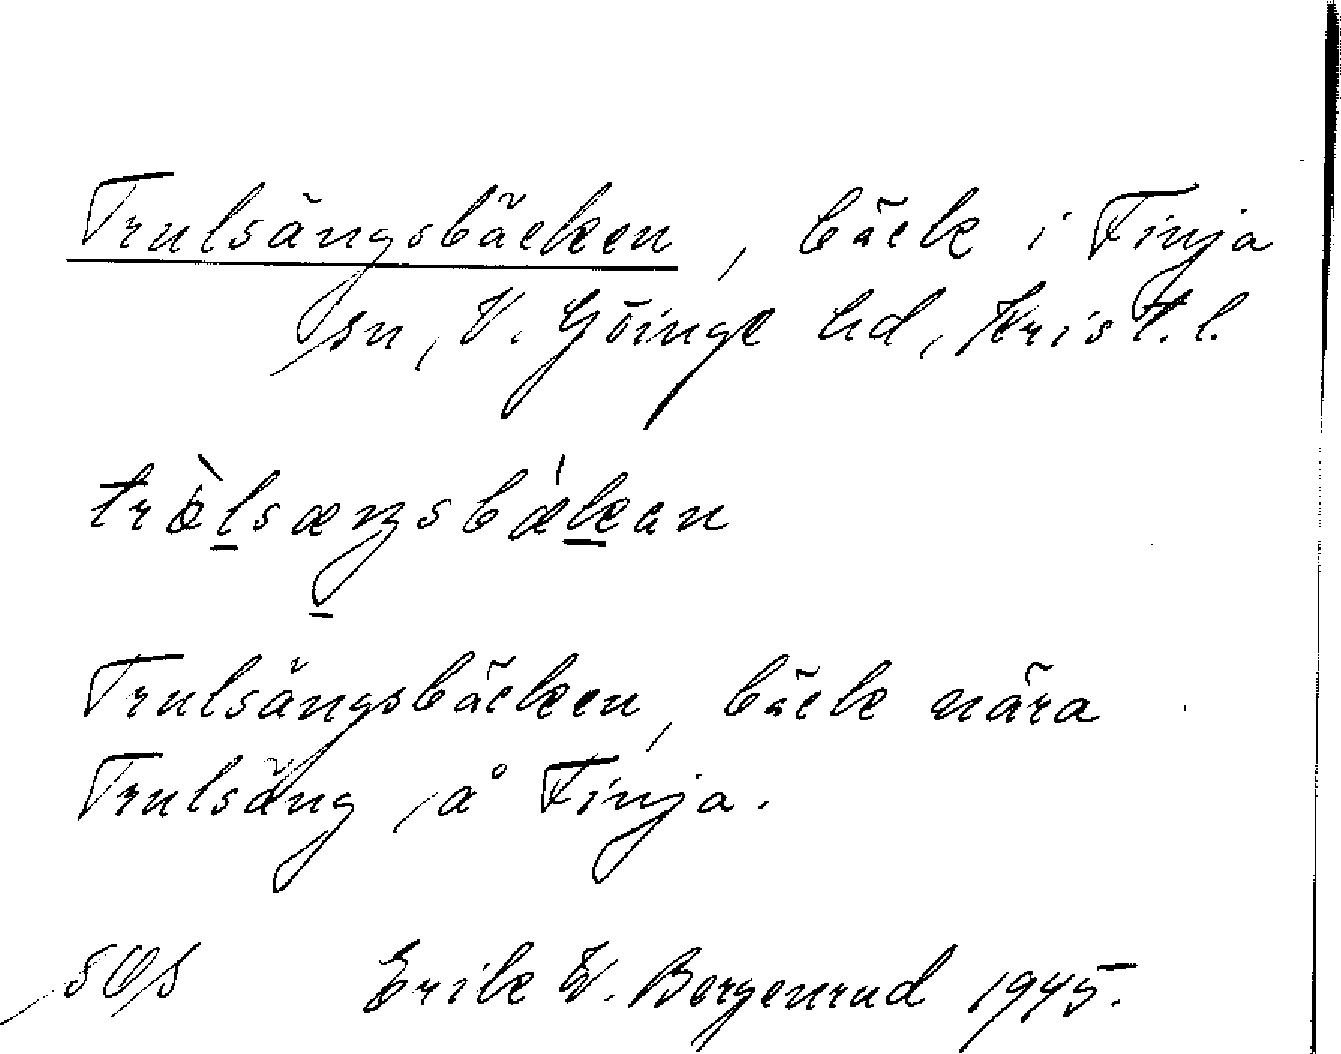 Trulsängsbäcken, bäck i Finja
sn, V. Göinge hd, Krist. l.
Trulsängsbäcken, bäck nära
Trulsäng, å Finja.
Erik W. Bergenrud 1945.